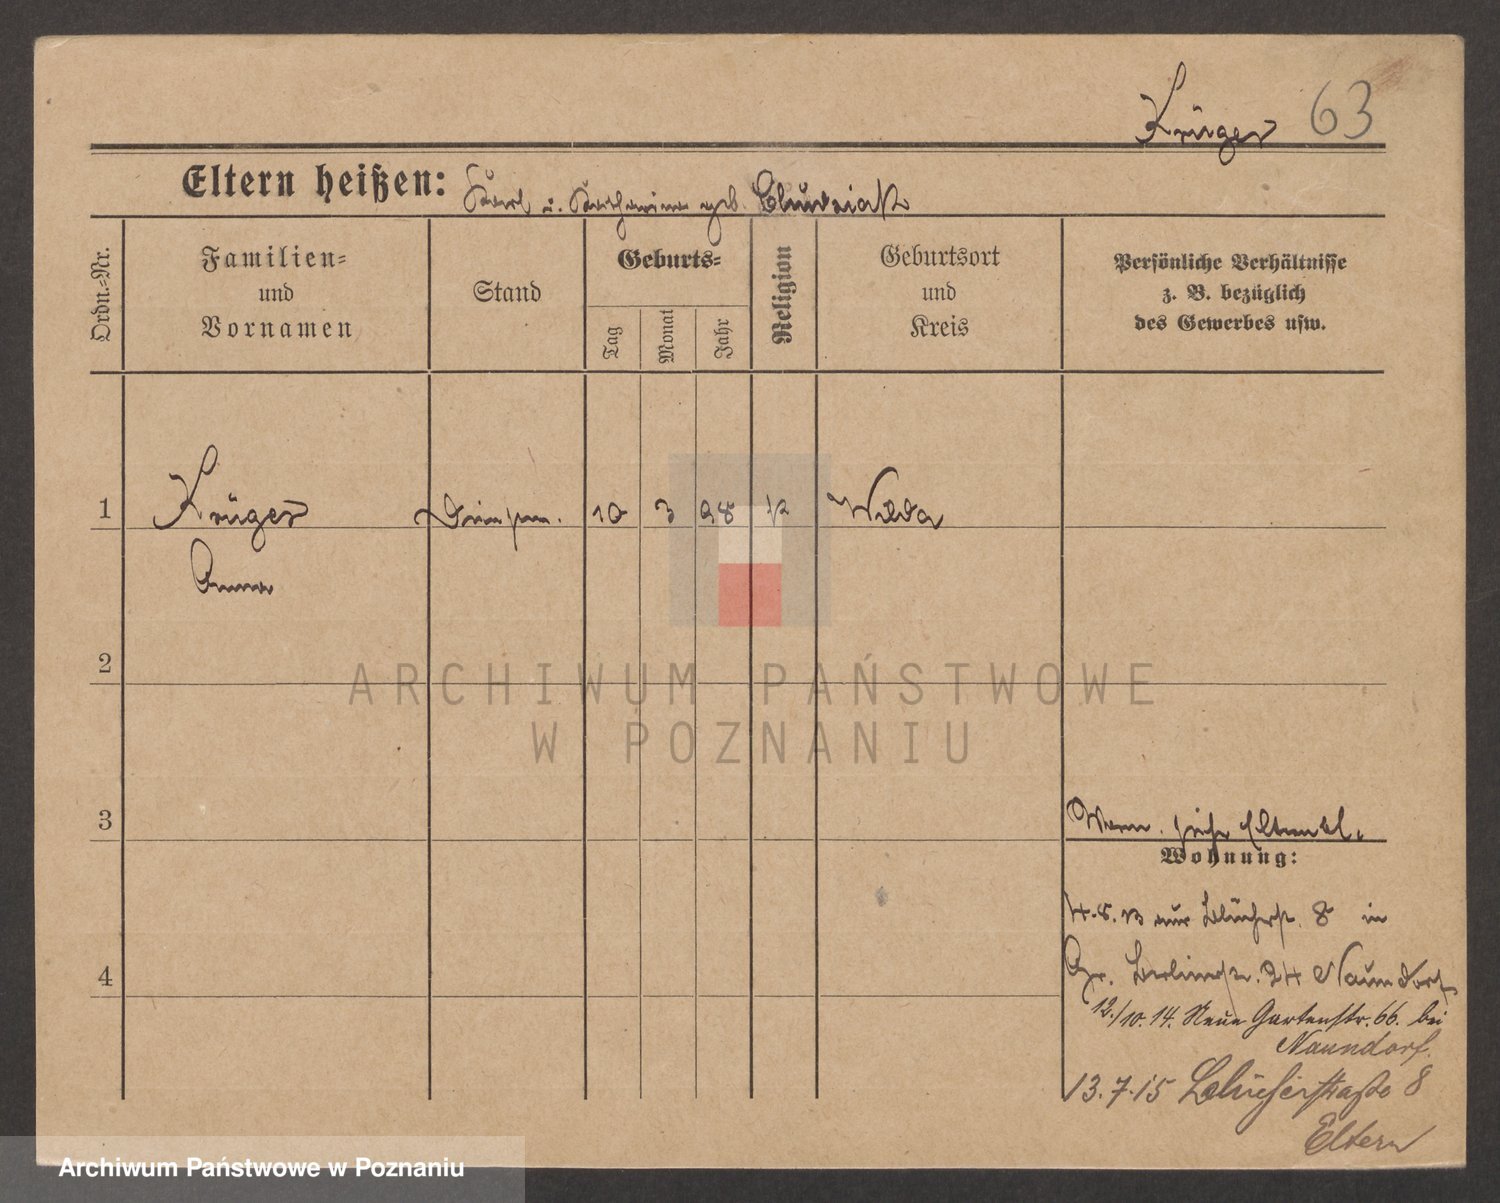 Krüger 63
Eltern heißen: Karl u. Katharina geb.
Ordn.-Nr.
Familien-
und
Vornamen
Stand
Geburts-
Tag
Monat
Jahr
Religion
Geburtsort
und
Kreis
Persönliche Verhältnisse
z. B. bezüglich
des Gewerbes usw.
1 Krüger 10 3 98 k Wilda
Anna
2
ARCHIWUM PAŃSTWOWE
W POZNANIU
3
Wohnung:
4
Blücherst. 8 in
Gr. Berlinerstr. 24 Naumdorf
12./10. 14. Neue Gartenstr. 66. bei
Naundorf.
13.7.15 Blücherstraße 8
Eltern
Archiwum Państwowe w Poznaniu